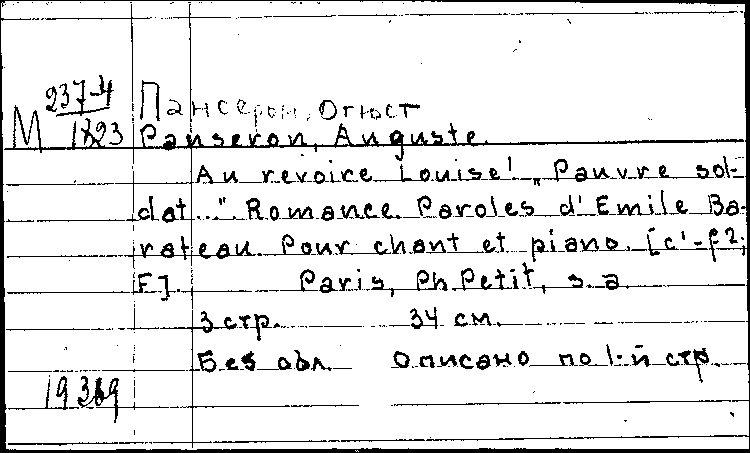 М 237-4
1823
Пансерон, Огюст
Panseron, Auguste.
Au revoire Louise! „Pauvre sol-
dat...". Romance. Paroles d'Emile Ba-
rateau. Pour chant et piano. [c'-f2;
F]. Paris, Ph. Petit, s. a.
3 стр. 34 см.
Без обл. Описано по 1-й стр.